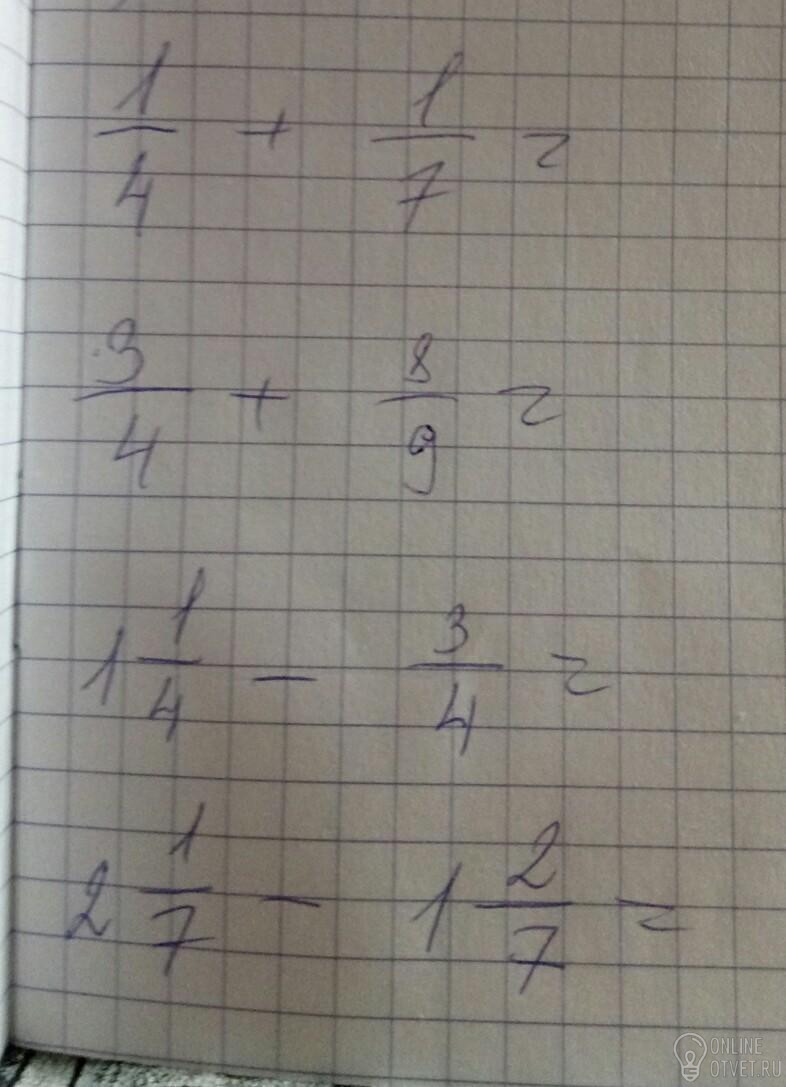 1/4 + 1/7 =
3/4 + 8/9 =
1 1/4 - 3/4 =
2 1/7 - 1 2/7 =
ONLINE
OTVET.RU